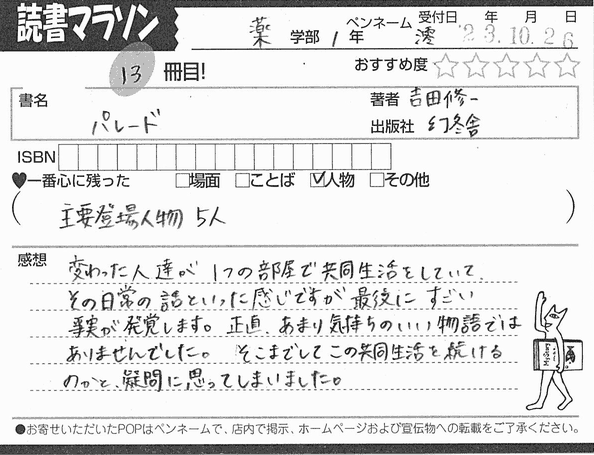 読書マラソン
薬 学部 1 年 ペンネーム 澪 受付日 年 月 日 '23.10.26
13 冊目! おすすめ度 ☆☆☆☆☆
書名 パレード 著者 吉田修一
出版社 幻冬舎
ISBN
♥一番心に残った □場面 □ことば ☑人物 □その他
( 主要登場人物 5人 )
感想
変わった人達が 1つの部屋で共同生活をしていて、
その日常の話といった感じですが最後に すごい
事実が発覚します。正直、あまり気持ちのいい物語では
ありませんでした。 そこまでしてこの共同生活を続ける
のかと、疑問に思ってしまいました。
●お寄せいただいたPOPはペンネームで、店内で掲示、ホームページおよび宣伝物への転載をご了承ください。